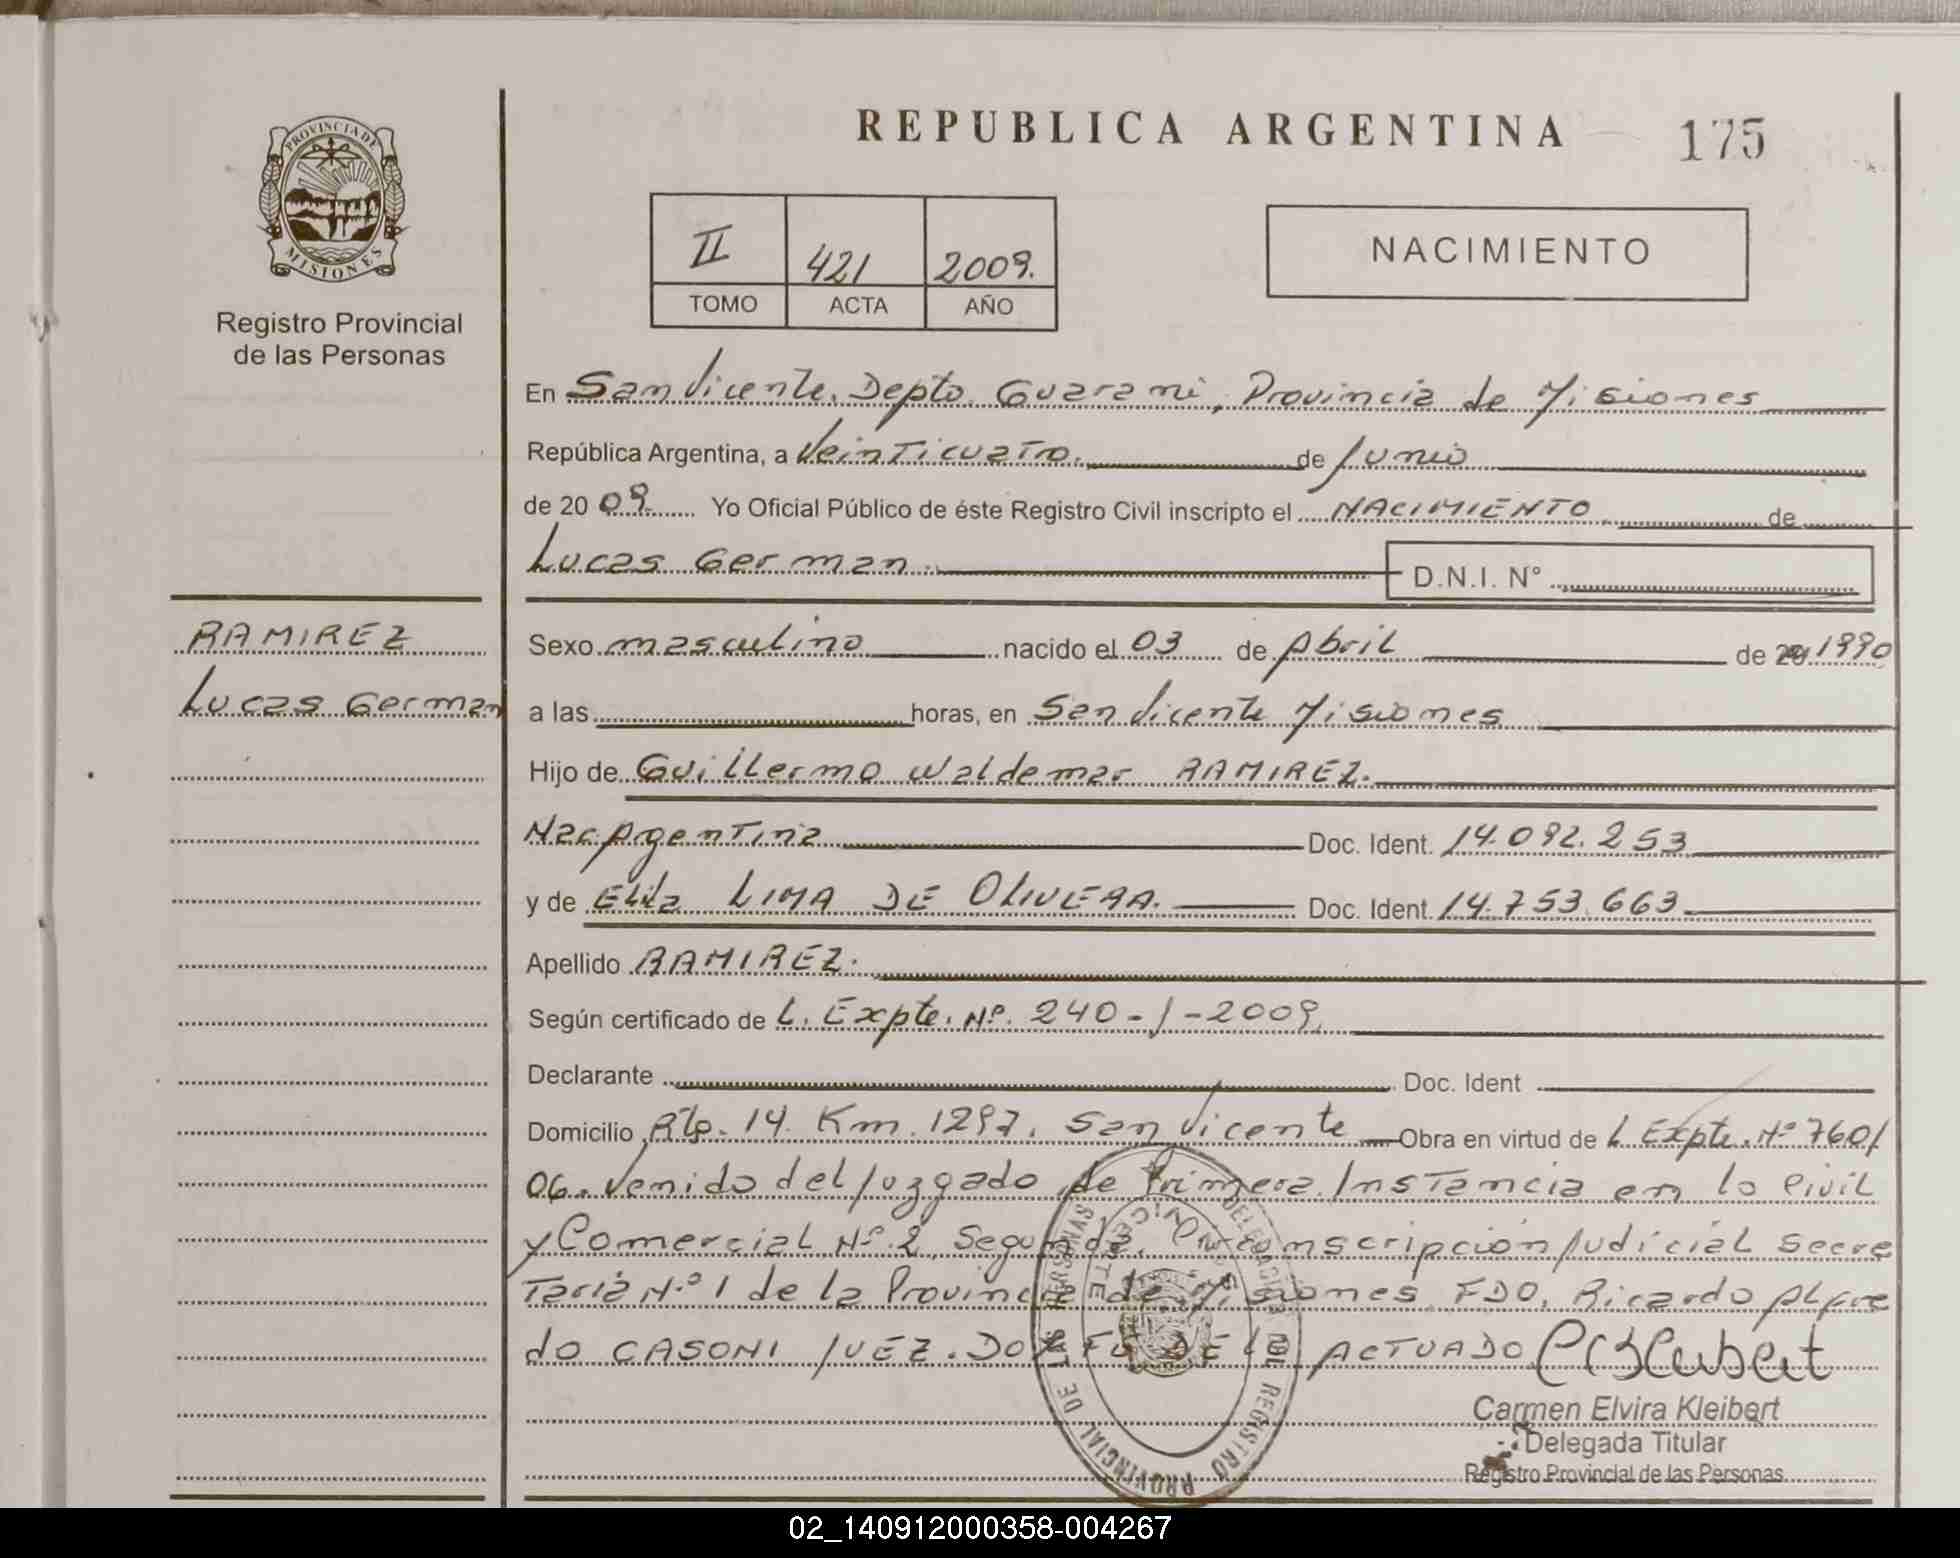 REPUBLICA ARGENTINA 175
PROVINCIA DE
MISIONES
Registro Provincial
de las Personas
II 421 2009.
TOMO ACTA AÑO
NACIMIENTO
En San Vicente. Depto. Guarani, Provincia de Misiones
República Argentina, a Veinticuatro. de Junio
de 2009. Yo Oficial Público de éste Registro Civil inscripto el NACIMIENTO de
Lucas German.
D.N.I. N°
RAMIREZ
Lucas German
Sexo masculino nacido el 03 de Abril de 20 1990
a las horas, en San Vicente Misiones
Hijo de Guillermo Waldemar RAMIREZ.
Nac Argentina Doc. Ident. 14.092.253
y de LIMA DE OLIVERA. Doc. Ident. 14.753.663
Apellido RAMIREZ.
Según certificado de L. Expte. Nº. 240-J-2009.
Declarante Doc. Ident
Domicilio Km. 1297. San Vicente Obra en virtud de L Expte. Nº 760/
06. Venido del Juzgado de Primera Instancia en lo Civil
y Comercial Nº. 2, Segunda. Circunscripción Judicial Secre
taria Nº 1 de la Provincia de Misiones FDO. Ricardo Alfre
do CASONI JUEZ. DOY FÉ DE LO ACTUADO
Carmen Elvira Kleibert
Delegada Titular
Registro Provincial de las Personas
REGISTRO PROVINCIAL DE LAS PERSONAS
02_140912000358-004267